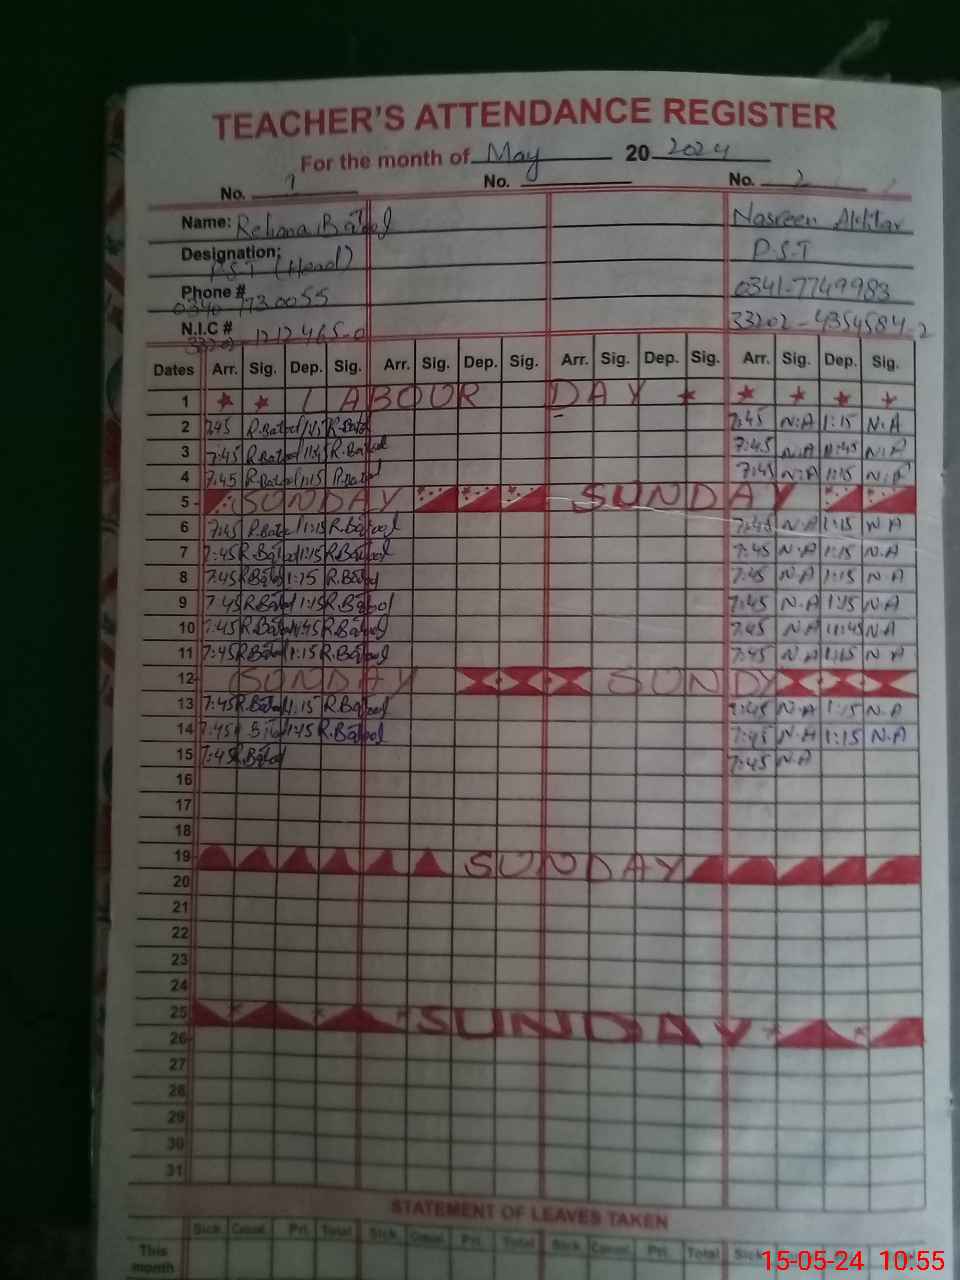 TEACHER'S ATTENDANCE REGISTER
For the month of May 20 2024
No. 1 No. No. 2
Name: Rehana Batool Nasreen Akhtar
Designation: P.S.T (Head) P.S.T
Phone # 0341-7749983
N.I.C # 33202-4354584-2
Dates Arr. Sig. Dep. Sig. Arr. Sig. Dep. Sig. Arr. Sig. Dep. Sig. Arr. Sig. Dep. Sig.
1 LABOUR DAY
2 7:45 R.Batool 1:15 R.Batool 7:45 N.A 1:15 N.A
3 7:45 R.Batool 11:45 R.Batool 7:45 N.A 11:45 N.A
4 7:45 R.Batool 1:15 R.Batool 7:45 N.A 1:15 N.A
5 SUNDAY SUNDAY
6 7:45 R.Batool 1:15 R.Batool 7:45 N.A 1:15 N.A
7 7:45 R.Batool 1:15 R.Batool 7:45 N.A 1:15 N.A
8 7:45 R.Batool 1:15 R.Batool 7:45 N.A 1:15 N.A
9 7:45 R.Batool 1:15 R.Batool 7:45 N.A 1:15 N.A
10 7:45 R.Batool 11:45 R.Batool 7:45 N.A 11:45 N.A
11 7:45 R.Batool 1:15 R.Batool 7:45 N.A 1:15 N.A
12 SUNDAY SUNDY
13 7:45 R.Batool 1:15 R.Batool 7:45 N.A 1:15 N.A
14 7:45 R.Batool 1:15 R.Batool 7:45 N.A 1:15 N.A
15 7:45 R.Batool 7:45 N.A
16
17
18
19 SUNDAY
20
21
22
23
24
25
26 SUNDAY
27
28
29
30
31
STATEMENT OF LEAVES TAKEN
Sick. Casual. Pri. Total Sick. Casual. Pri. Total Sick. Casual. Pri. Total Sick.
This month
15-05-24 10.55